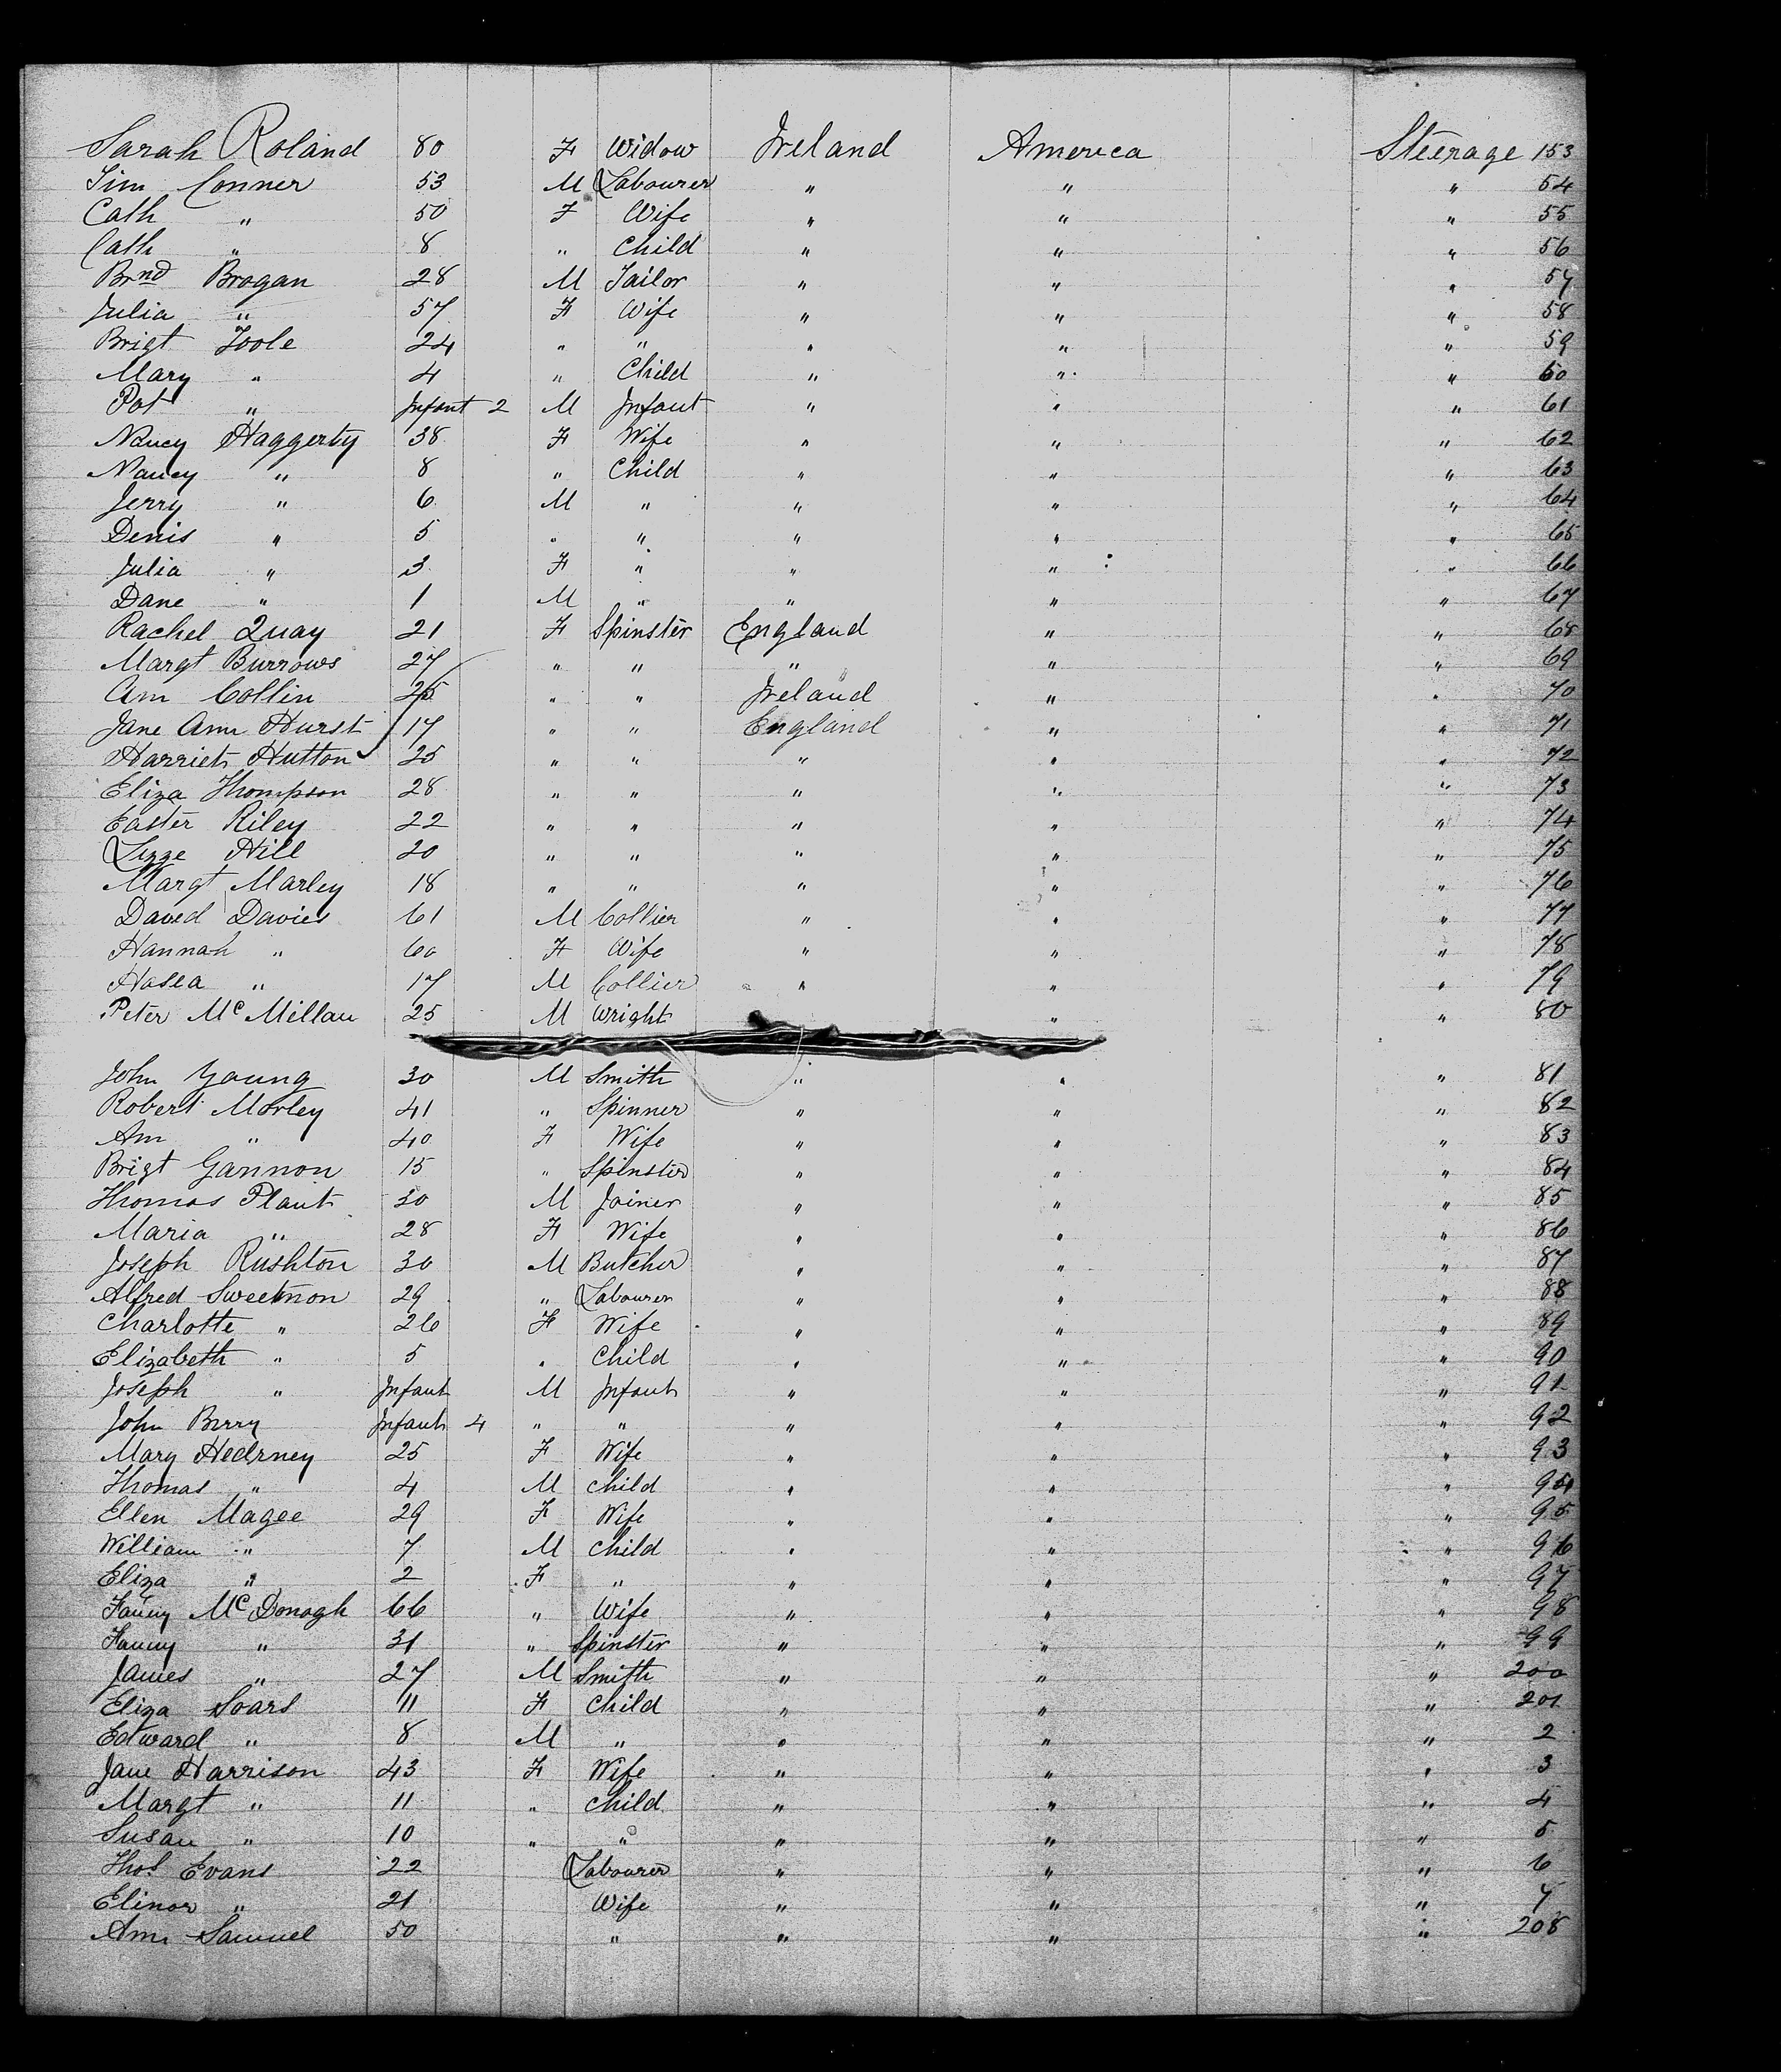 Sarah Roland 80 F Widow Ireland America Steerage 153
Tim Conner 53 M Labourer " " " 54
Cath " 50 F Wife " " " 55
Cath " 8 " Child " " " 56
Brnd Brogan 28 M Tailor " " " 57
Julia " 57 F Wife " " " 58
Brigt Toole 24 " " " " " 59
Mary " 4 " Child " " " 60
Pat " Infant 2 M Infant " " " 61
Nancy Haggerty 38 F Wife " " " 62
Nancy " 8 " Child " " " 63
Jerry " 6 M " " " " 64
Denis " 5 " " " " " 65
Julia " 3 F " " " " 66
Dane " 1 M " " " " 67
Rachel Quay 21 F Spinster England " " 68
Margt Burrows 27 " " " " " 69
Ann Collin 25 " " Ireland " " 70
Jane Ann Hurst 17 " " England " " 71
Harriet Hutton 25 " " " " " 72
Eliza Thompson 28 " " " " " 73
Easter Riley 22 " " " " " 74
Lizze Hill 20 " " " " " 75
Margt Marley 18 " " " " " 76
David Davies 61 M Collier " " " 77
Hannah " 60 F Wife " " " 78
Hosea " 17 M Collier " " " 79
Peter McMillan 25 M Wright " " 80
John Young 30 M Smith " " " 81
Robert Morley 41 " Spinner " " " 82
Ann " 40 F Wife " " " 83
Brigt Gannon 15 " Spinster " " " 84
Thomas Plant 30 M Joiner " " " 85
Maria " 28 F Wife " " " 86
Joseph Rushton 30 M Butcher " " " 87
Alfred Sweetmon 29 " Labourer " " " 88
Charlotte " 26 F Wife " " " 89
Elizabeth " 5 " Child " " " 90
Joseph " Infant M Infant " " " 91
John Berry Infant 4 " " " " " 92
Mary 25 F Wife " " " 93
Thomas " 4 M Child " " " 94
Ellen Magee 29 F Wife " " " 95
William " 7 M Child " " " 96
Eliza " 2 F " " " " 97
Fanny McDonagh 66 " Wife " " " 98
Fanny " 31 " Spinster " " " 99
James " 27 M Smith " " " 200
Eliza Soars 11 F Child " " " 201
Edward " 8 M " " " " 2
Jane Harrison 43 F Wife " " " 3
Margt " 11 " Child " " " 4
Susan " 10 " " " " " 5
Thos Evans 22 Labourer " " " 6
Elinor " 21 Wife " " " 7
Ann Samuel 50 " " " " 208